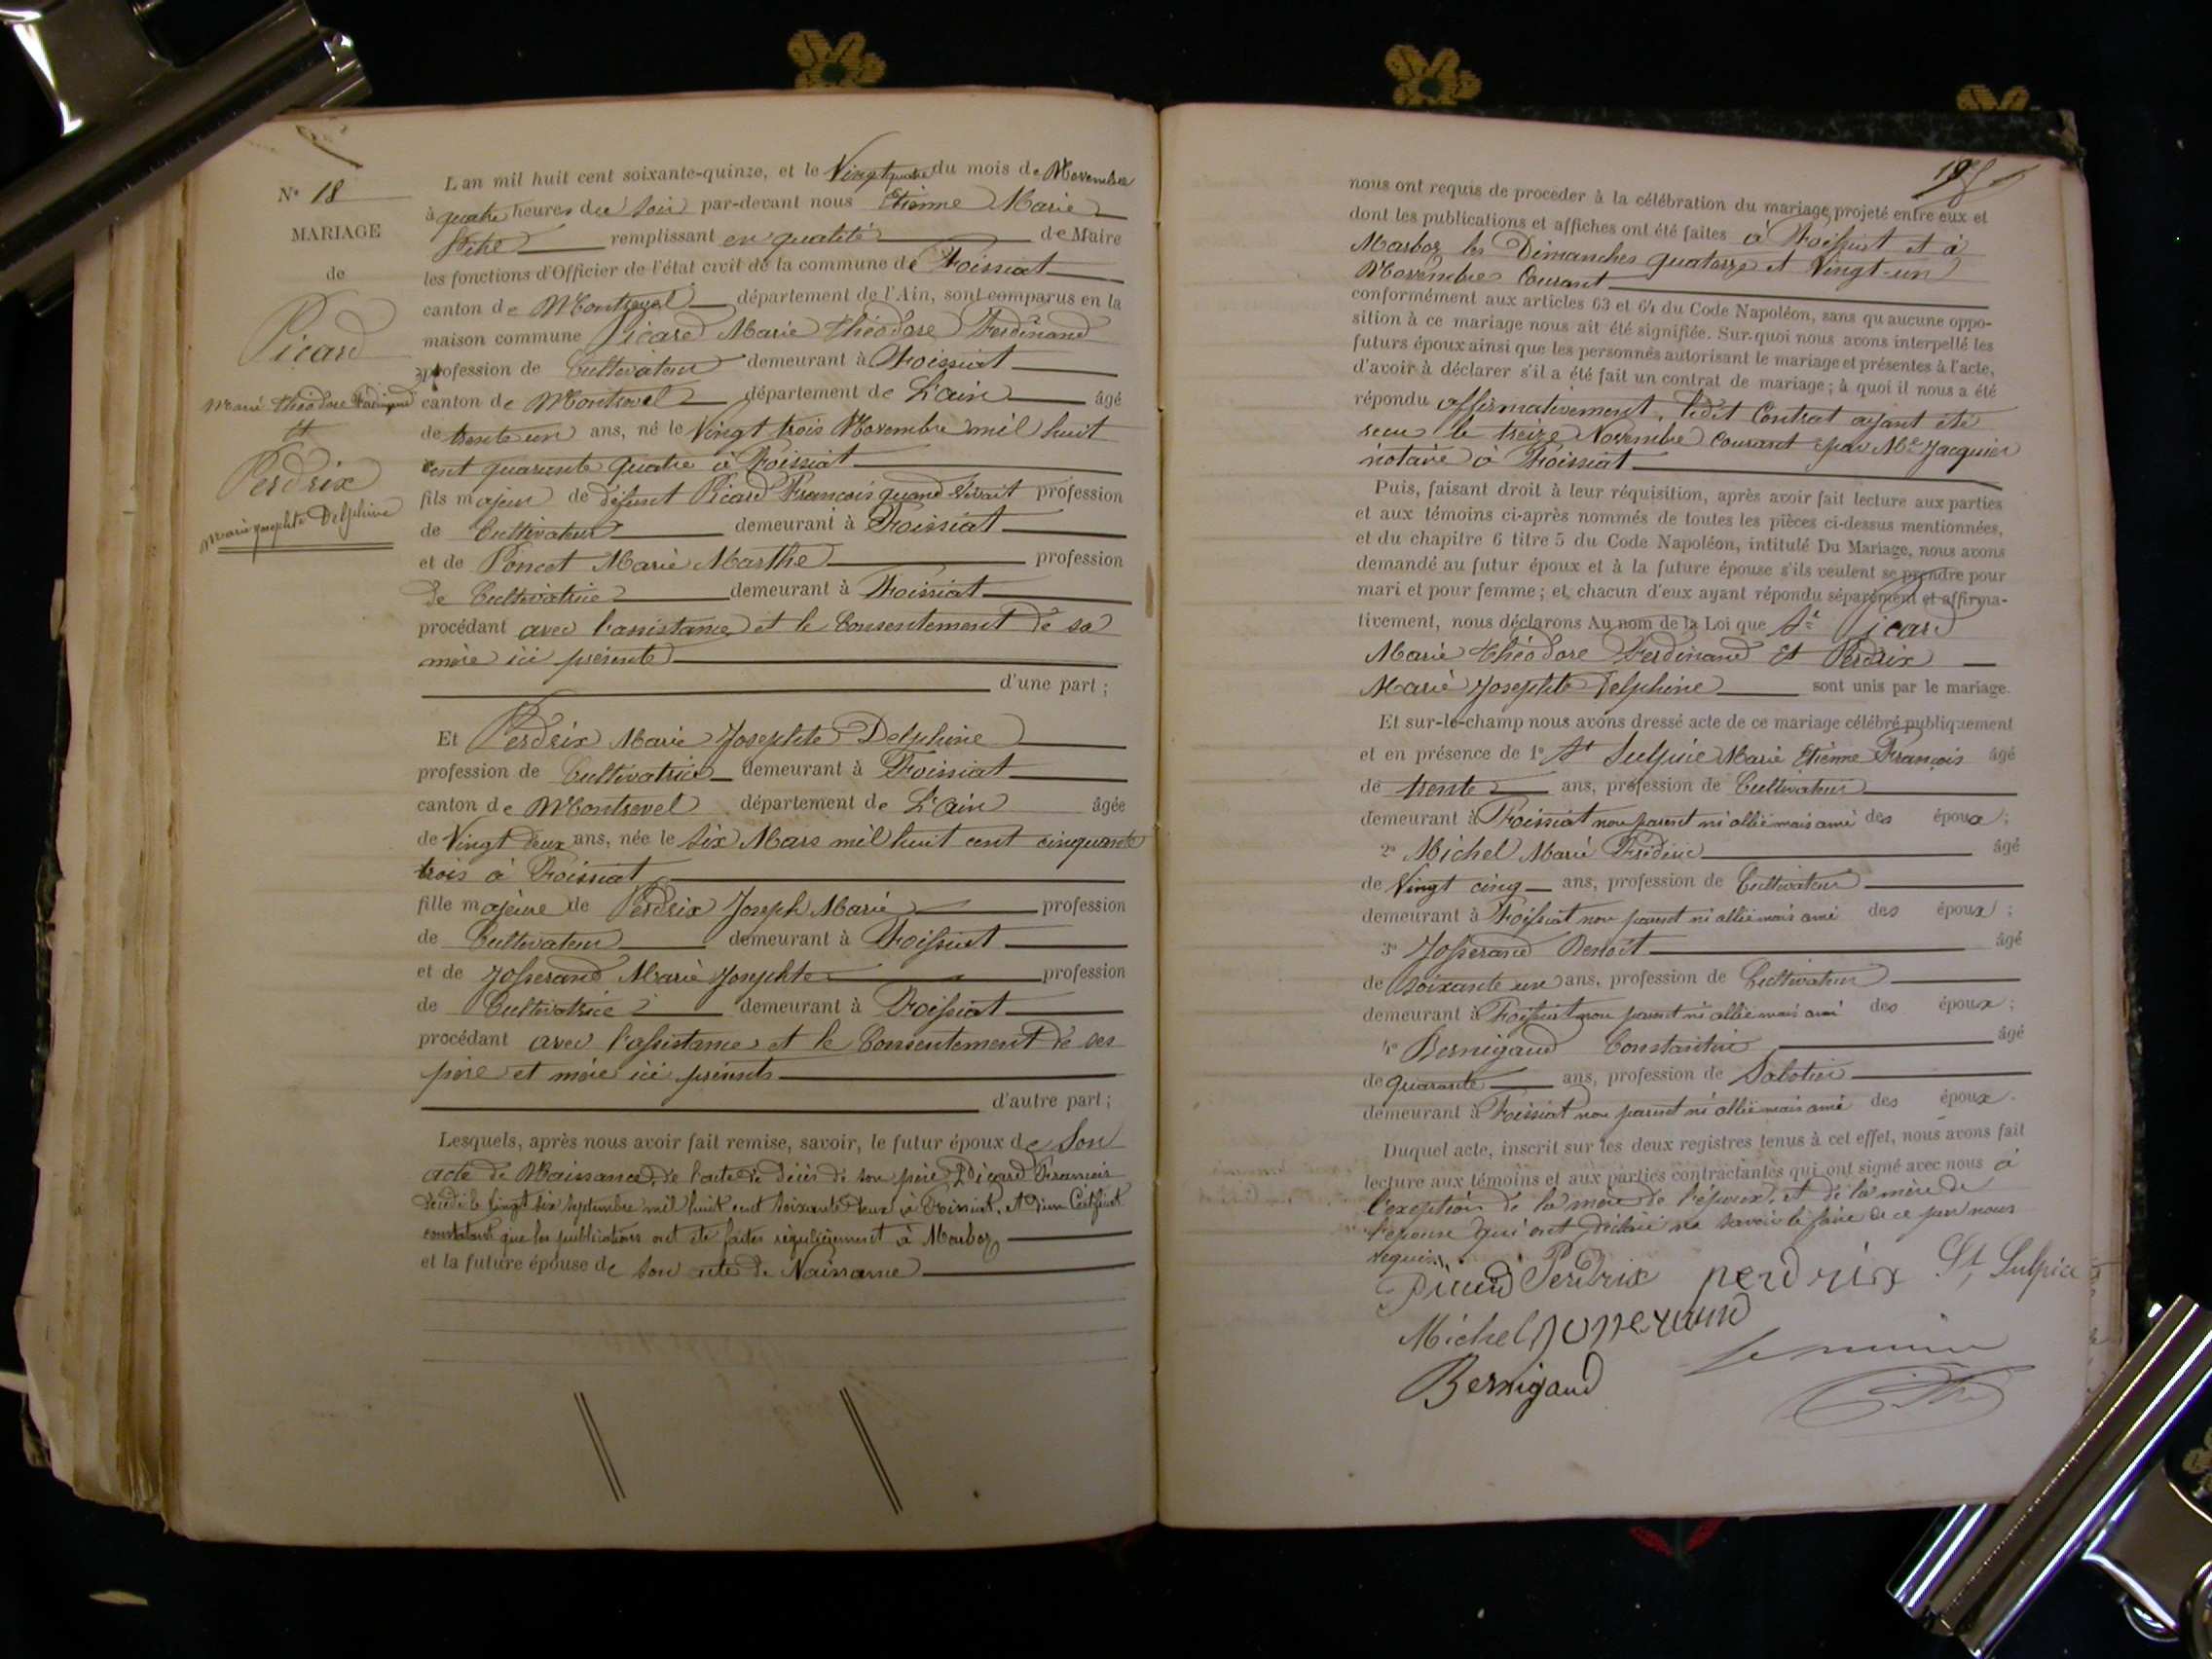 N° 18
MARIAGE
de
Picard
Marie Théodore Ferdinand
et
Perdrix
Marie Josephte Delphine
L'an mil huit cent soixante-quinze, et le Vingt quatre du mois de Novembre
à quatre heures du soir par-devant nous Etienne Marie
remplissant en qualité de Maire
les fonctions d'Officier de l'état civil de la commune de Foissiat
canton de Montrevel département de l'Ain, sont comparus en la
maison commune Picard Marie Théodore Ferdinand
profession de Cultivateur demeurant à Foissiat
canton de Montrevel département de L'ain âgé
de trente un ans, né le Vingt trois Novembre mil huit
cent quarante quatre à Foissiat
fils majeur de défunt Picard François quand vivait profession
de Cultivateur demeurant à Foissiat
et de Poncet Marie Marthe profession
de Cultivatrice demeurant à Foissiat
procédant avec l'assistance et le Consentement de sa
mère ici présente
d'une part ;
Et Perdrix Marie Josephte Delphine
profession de Cultivatrice demeurant à Foissiat
canton de Montrevel département de L'ain âgée
de Vingt deux ans, née le Six Mars mil huit cent cinquante
trois à Foissiat
fille majeure de Perdrix Joseph Marie profession
de Cultivateur demeurant à Foissiat
et de Josserand Marie Josephte profession
de Cultivatrice demeurant à Foissiat
procédant avec l'assistance et le Consentement de ses
père et mère ici présents
d'autre part ;
Lesquels, après nous avoir fait remise, savoir, le futur époux de Son
acte de Naissance, de l'acte de décès de son père Picard François
décédé le vingt six septembre mil huit cent soixante deux à Foissiat, et d'un Certificat
constatant que les publications ont été faites régulièrement à Marboz
et la future épouse de son acte de Naissance
195
nous ont requis de procéder à la célébration du mariage projeté entre eux et
dont les publications et affiches ont été faites à Foissiat et à
Marboz les Dimanches quatorze et Vingt-un
Novembre Courant
conformément aux articles 63 et 64 du Code Napoléon, sans qu'aucune oppo-
sition à ce mariage nous ait été signifiée. Sur-quoi nous avons interpellé les
futurs époux ainsi que les personnes autorisant le mariage et présentes à l'acte,
d'avoir à déclarer s'il a été fait un contrat de mariage ; à quoi il nous a été
répondu affirmativement, ledit Contrat ayant été
reçu le treize Novembre courant par Me Jacquier
notaire à Foissiat
Puis, faisant droit à leur réquisition, après avoir fait lecture aux parties
et aux témoins ci-après nommés de toutes les pièces ci-dessus mentionnées,
et du chapitre 6 titre 5 du Code Napoléon, intitulé Du Mariage, nous avons
demandé au futur époux et à la future épouse s'ils veulent se prendre pour
mari et pour femme ; et chacun d'eux ayant répondu séparément et affirma-
tivement, nous déclarons Au nom de la Loi que Picard
Marie Théodore Ferdinand Et Perdrix
Marie Josephte Delphine sont unis par le mariage.
Et sur-le-champ nous avons dressé acte de ce mariage célébré publiquement
et en présence de 1° St Sulpice Marie Etienne François âgé
de trente ans, profession de Cultivateur
demeurant à Foissiat non parent ni allié mais ami des époux ;
2° Michel Marie Frédéric âgé
de Vingt cinq ans, profession de Cultivateur
demeurant à Foissiat non parent ni allié mais ami des époux ;
3° Josserand Benoît âgé
de soixante un ans, profession de Cultivateur
demeurant à Foissiat non parent ni allié mais ami des époux ;
4° Bernigaud Constantin âgé
de quarante ans, profession de Sabotier
demeurant à Foissiat non parent ni allié mais ami des époux.
Duquel acte, inscrit sur les deux registres tenus à cet effet, nous avons fait
lecture aux témoins et aux parties contractantes qui ont signé avec nous à
l'exception de la mère de l'époux, et de la mère de
l'épouse qui ont déclaré ne savoir le faire de ce par nous
requis.
Picard Perdrix perdrix St Sulpice
Michel Josserand
Le maire
Bernigaud